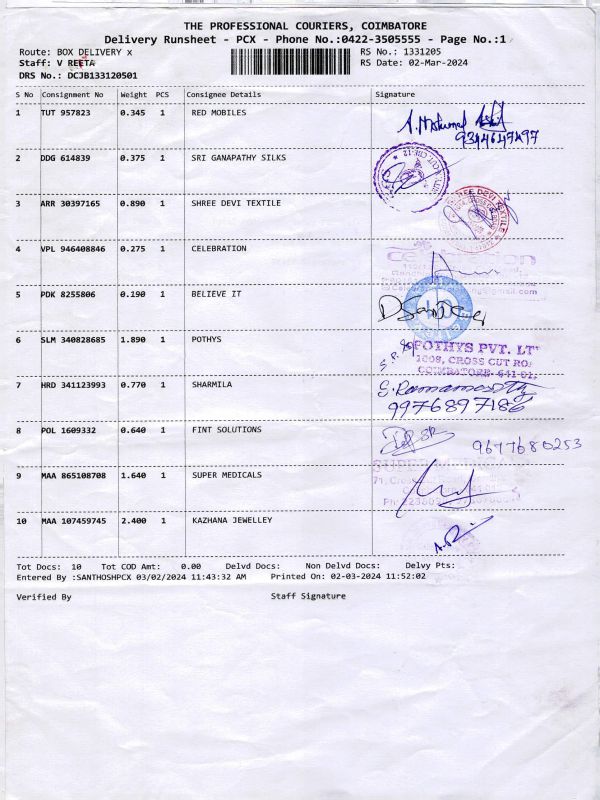 THE PROFESSIONAL COURIERS, COIMBATORE
Delivery Runsheet - PCX - Phone No.:0422-3505555 - Page No.:1
Route: BOX DELIVERY x RS No.: 1331205
Staff: V REETA RS Date: 02-Mar-2024
DRS No.: DCJB133120501
S No Consignment No Weight PCS Consignee Details Signature
1 TUT 957823 0.345 1 RED MOBILES
2 DDG 614839 0.375 1 SRI GANAPATHY SILKS
3 ARR 30397165 0.890 1 SHREE DEVI TEXTILE
4 VPL 946408846 0.275 1 CELEBRATION
5 PDK 8255806 0.190 1 BELIEVE IT
6 SLM 340828685 1.890 1 POTHYS
POTHYS PVT. LT
1008, CROSS CUT RO
COIMBATORE- 641 01
7 HRD 341123993 0.770 1 SHARMILA
9976897186
8 POL 1609332 0.640 1 FINT SOLUTIONS 9677680253
9 MAA 865108708 1.640 1 SUPER MEDICALS
10 MAA 107459745 2.400 1 KAZHANA JEWELLEY
Tot Docs: 10 Tot COD Amt: 0.00 Delvd Docs: Non Delvd Docs: Delvy Pts:
Entered By :SANTHOSHPCX 03/02/2024 11:43:32 AM Printed On: 02-03-2024 11:52:02
Verified By Staff Signature